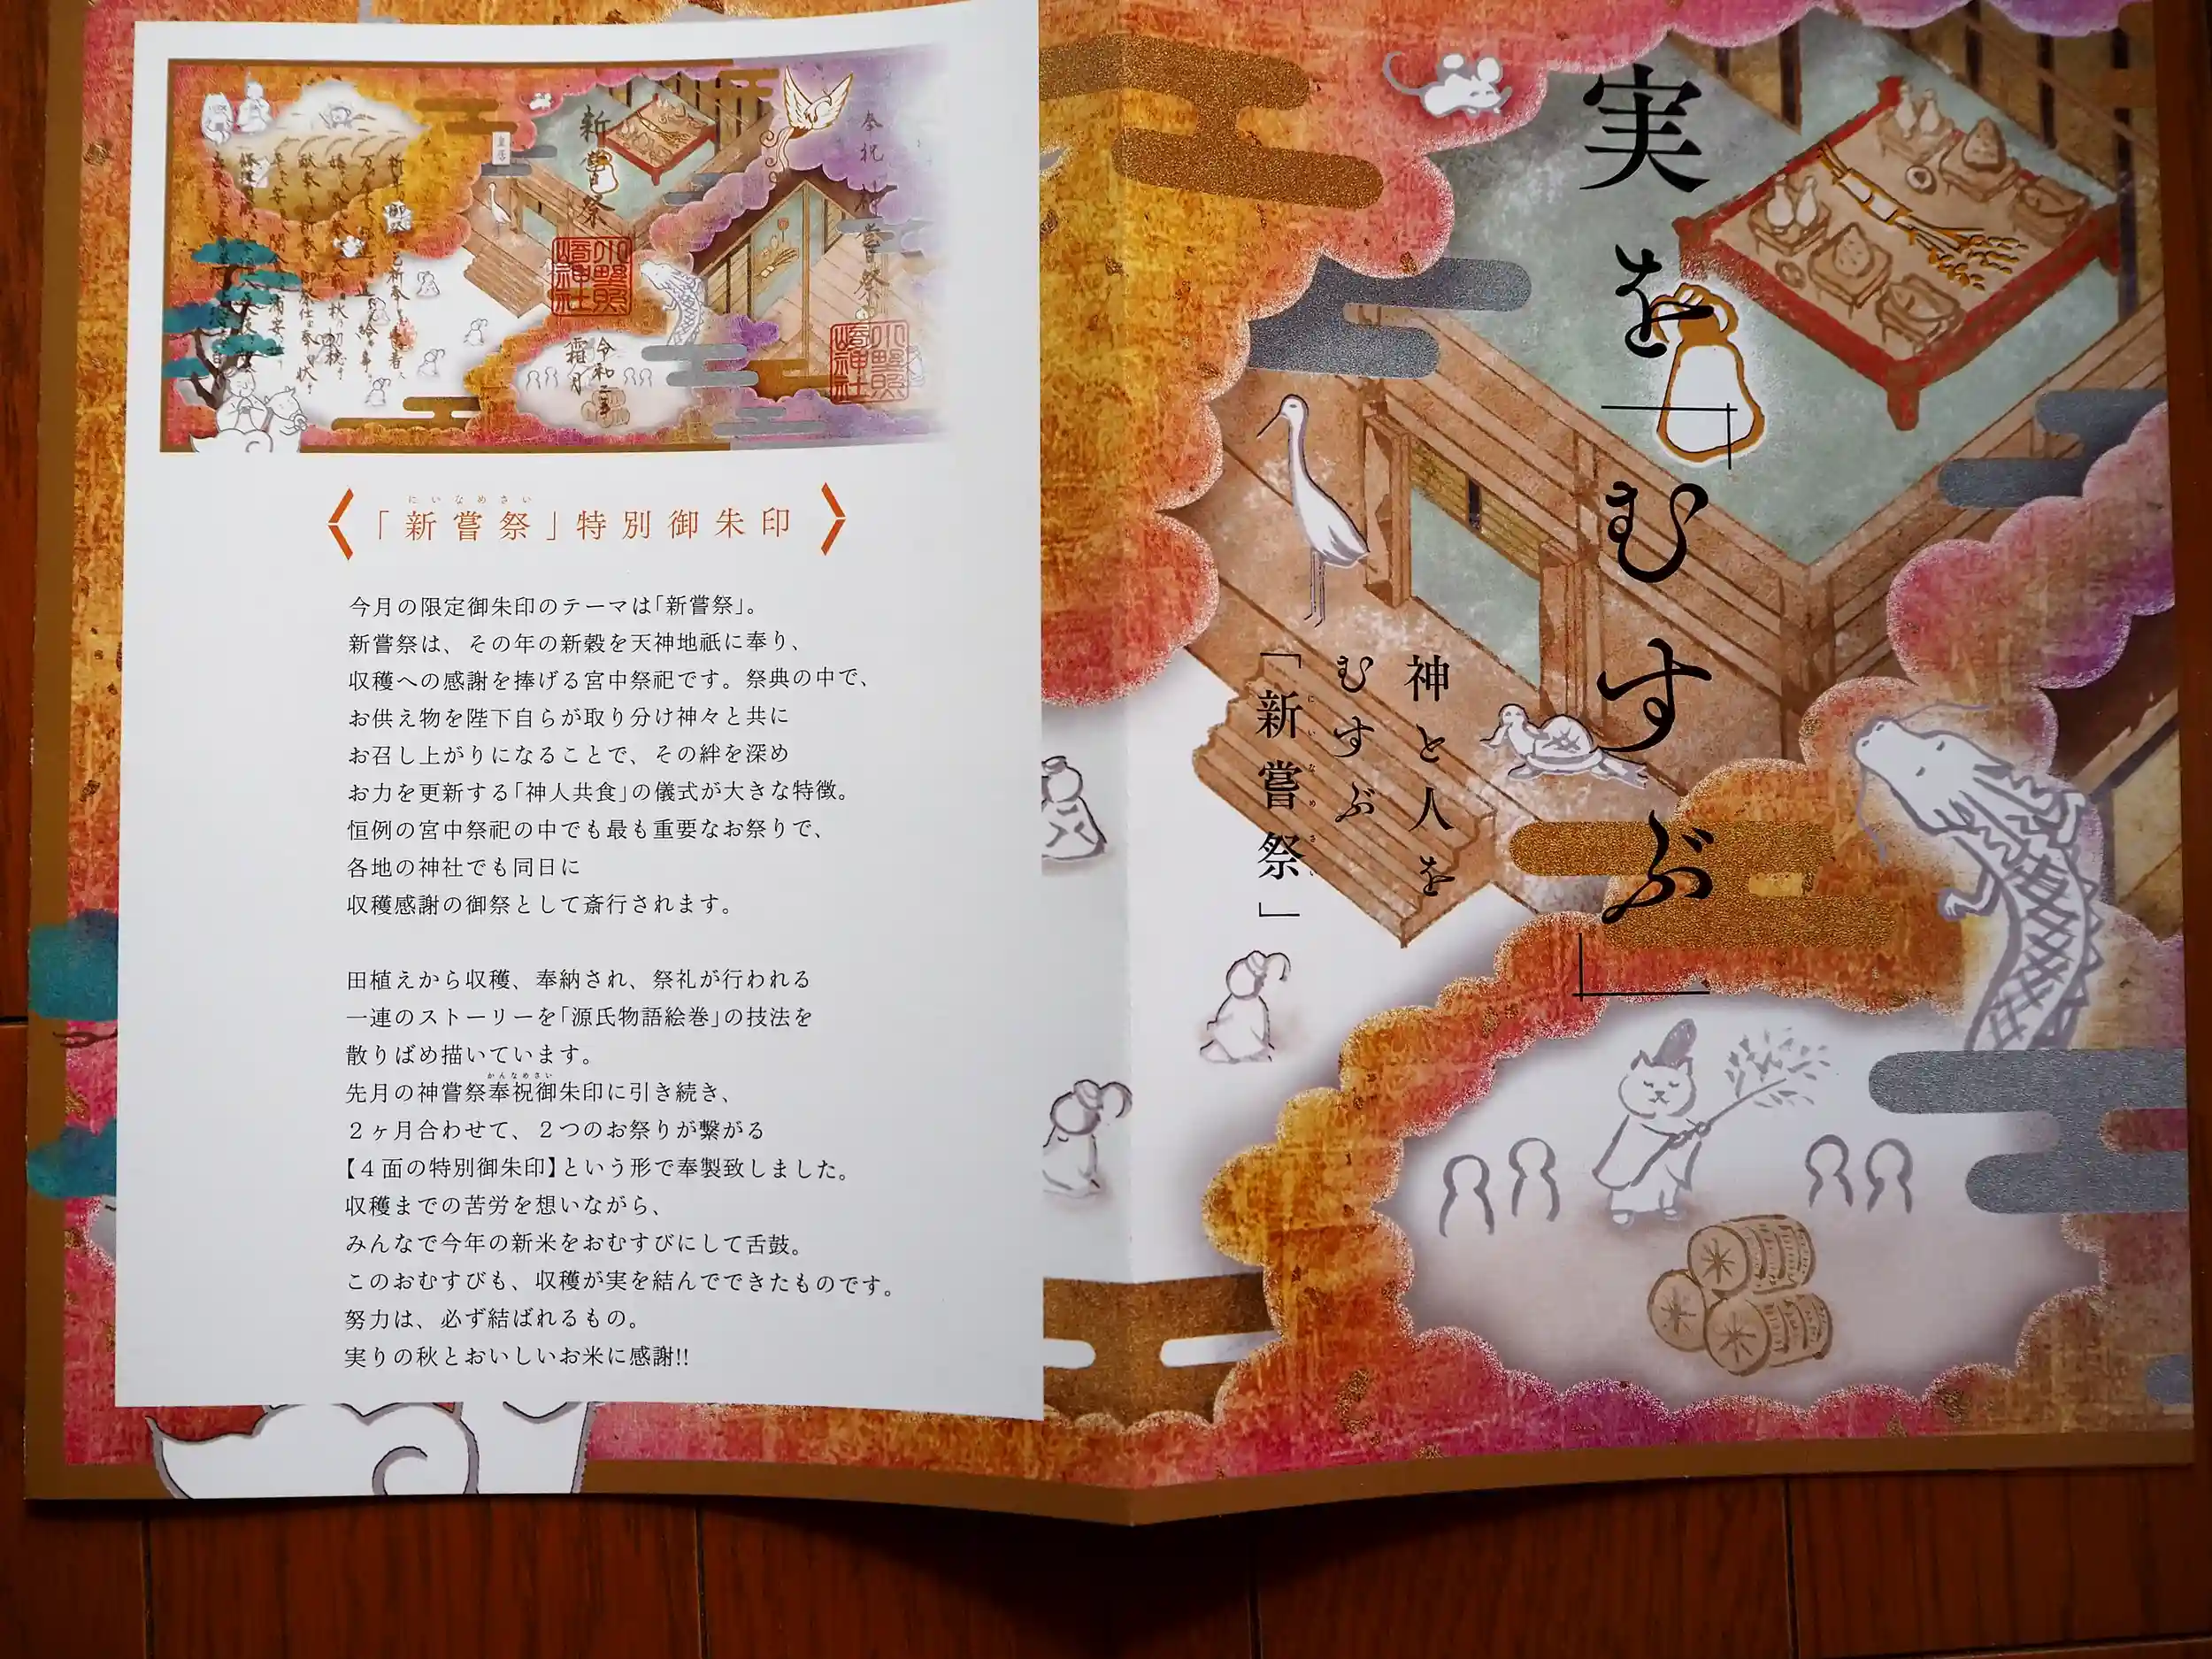 実を「むすぶ」
神と人を
むすぶ
「新嘗祭」
にいなめさい
奉祝 神嘗祭
新嘗祭
令和二年
霜月
小野照
崎神社
小野照
崎神社
にいなめさい
「新嘗祭」特別御朱印
今月の限定御朱印のテーマは「新嘗祭」。
新嘗祭は、その年の新穀を天神地祇に奉り、
収穫への感謝を捧げる宮中祭祀です。祭典の中で、
お供え物を陛下自らが取り分け神々と共に
お召し上がりになることで、その絆を深め
お力を更新する「神人共食」の儀式が大きな特徴。
恒例の宮中祭祀の中でも最も重要なお祭りで、
各地の神社でも同日に
収穫感謝の御祭として斎行されます。
田植えから収穫、奉納され、祭礼が行われる
一連のストーリーを「源氏物語絵巻」の技法を
散りばめ描いています。
かんなめさい
先月の神嘗祭奉祝御朱印に引き続き、
２ヶ月合わせて、２つのお祭りが繋がる
【４面の特別御朱印】という形で奉製致しました。
収穫までの苦労を想いながら、
みんなで今年の新米をおむすびにして舌鼓。
このおむすびも、収穫が実を結んでできたものです。
努力は、必ず結ばれるもの。
実りの秋とおいしいお米に感謝!!